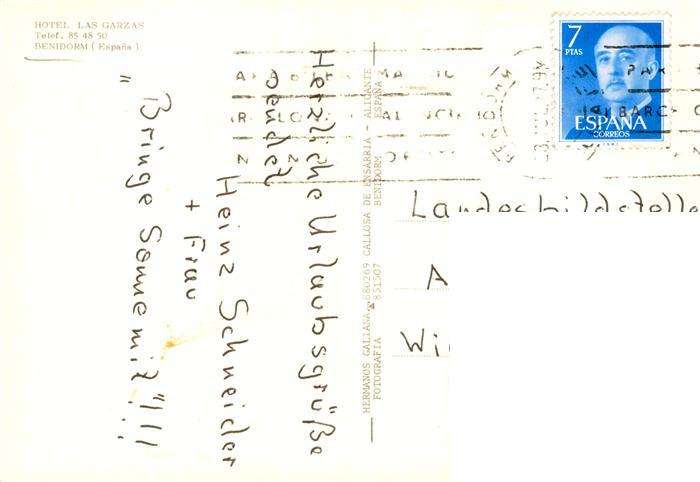 HOTEL LAS GARZAS
Telef. 85 48 50
BENIDORM (España)
Herzliche Urlaubsgrüße
sendet
Heinz Schneider
+ Frau
"Bringe Sonne mit"!!!
HERMANOS GALIANA. 880269 CALLOSA DE ENSARRIA - ALICANTE
FOTOGRAFIA 851507 BENIDORM ESPAÑA
7
PTAS
ESPAÑA
CORREOS
Landesbildstelle
A